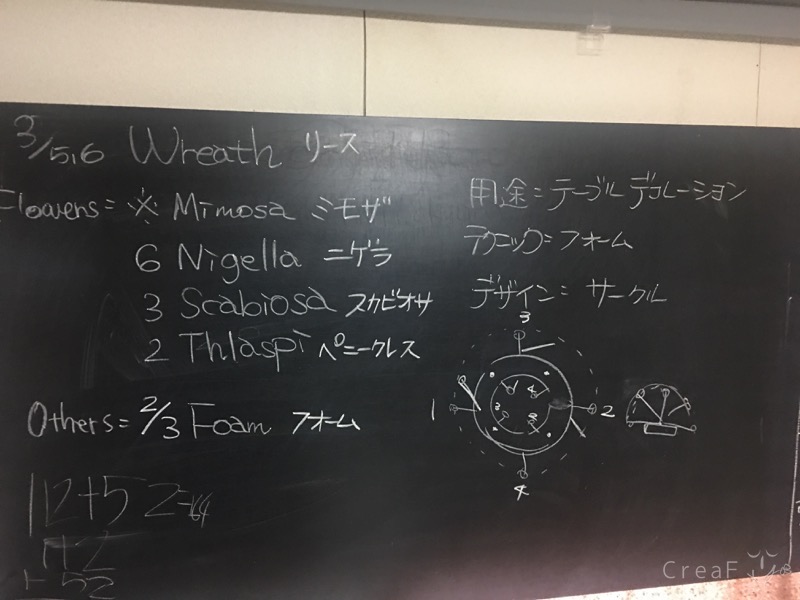 3/5,6 Wreath リース
Flowers = ※ Mimosa ミモザ
6 Nigella ニゲラ
3 Scabiosa スカビオサ
2 Thlaspi ペニークレス
Others = 2/3 Foam フォーム
112+52=164
112
+ 52
用途 = テーブルデコレーション
テクニック = フォーム
デザイン = サークル
3
1 4
1 3 2 2
4
CreaF